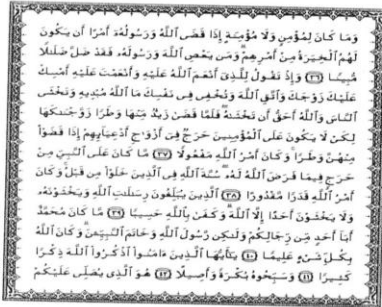 وَمَا كَانَ لِمُؤْمِنٍ وَلَا مُؤْمِنَةٍ إِذَا قَضَى ٱللَّهُ وَرَسُولُهُۥٓ أَمْرًا أَن يَكُونَ
لَهُمُ ٱلْخِيَرَةُ مِنْ أَمْرِهِمْ ۗ وَمَن يَعْصِ ٱللَّهَ وَرَسُولَهُۥ فَقَدْ ضَلَّ ضَلَٰلًا
مُّبِينًا ﴿٣٦﴾ وَإِذْ تَقُولُ لِلَّذِىٓ أَنْعَمَ ٱللَّهُ عَلَيْهِ وَأَنْعَمْتَ عَلَيْهِ أَمْسِكْ
عَلَيْكَ زَوْجَكَ وَٱتَّقِ ٱللَّهَ وَتُخْفِى فِى نَفْسِكَ مَا ٱللَّهُ مُبْدِيهِ وَتَخْشَى
ٱلنَّاسَ وَٱللَّهُ أَحَقُّ أَن تَخْشَىٰهُ ۖ فَلَمَّا قَضَىٰ زَيْدٌ مِّنْهَا وَطَرًا زَوَّجْنَٰكَهَا
لِكَىْ لَا يَكُونَ عَلَى ٱلْمُؤْمِنِينَ حَرَجٌ فِىٓ أَزْوَٰجِ أَدْعِيَآئِهِمْ إِذَا قَضَوْا۟
مِنْهُنَّ وَطَرًا ۚ وَكَانَ أَمْرُ ٱللَّهِ مَفْعُولًا ﴿٣٧﴾ مَّا كَانَ عَلَى ٱلنَّبِىِّ مِنْ
حَرَجٍ فِيمَا فَرَضَ ٱللَّهُ لَهُۥ ۖ سُنَّةَ ٱللَّهِ فِى ٱلَّذِينَ خَلَوْا۟ مِن قَبْلُ ۚ وَكَانَ
أَمْرُ ٱللَّهِ قَدَرًا مَّقْدُورًا ﴿٣٨﴾ ٱلَّذِينَ يُبَلِّغُونَ رِسَٰلَٰتِ ٱللَّهِ وَيَخْشَوْنَهُۥ
وَلَا يَخْشَوْنَ أَحَدًا إِلَّا ٱللَّهَ ۗ وَكَفَىٰ بِٱللَّهِ حَسِيبًا ﴿٣٩﴾ مَّا كَانَ مُحَمَّدٌ
أَبَآ أَحَدٍ مِّن رِّجَالِكُمْ وَلَٰكِن رَّسُولَ ٱللَّهِ وَخَاتَمَ ٱلنَّبِيِّـۧنَ ۗ وَكَانَ ٱللَّهُ
بِكُلِّ شَىْءٍ عَلِيمًا ﴿٤٠﴾ يَٰٓأَيُّهَا ٱلَّذِينَ ءَامَنُوا۟ ٱذْكُرُوا۟ ٱللَّهَ ذِكْرًا
كَثِيرًا ﴿٤١﴾ وَسَبِّحُوهُ بُكْرَةً وَأَصِيلًا ﴿٤٢﴾ هُوَ ٱلَّذِى يُصَلِّى عَلَيْكُمْ